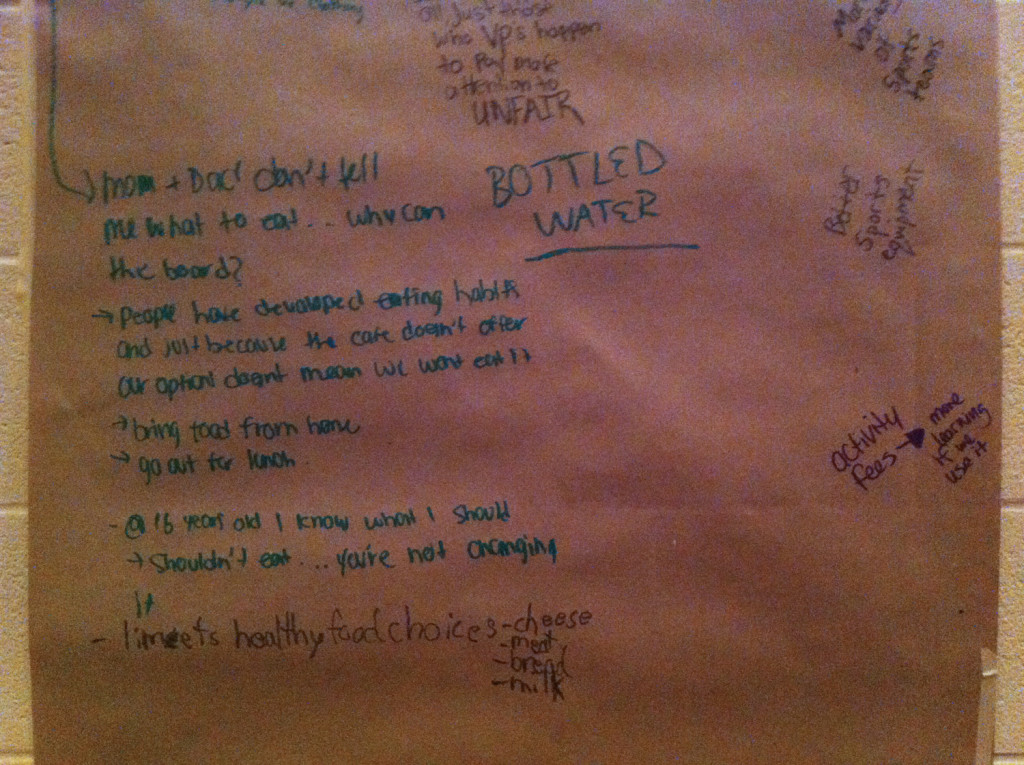 clothing
all just those
who VPs happen
to pay more
attention to
UNFAIR
More
of
Sports
teams
mom + Dad don't tell
me what to eat... why can
the board?
BOTTLED
WATER
Better
Sports
equipment
→ People have developed eating habits
and just because the cafe doesn't offer
our option doesnt mean we wont eat it
→ bring food from home
→ go out for lunch.
activity
fees → more
learning
if we
use it
- @ 16 years old I know what I should
→ Shouldn't eat.... you're not changing
it
- limeets healthy food choices - cheese
- meat
- bread
- milk